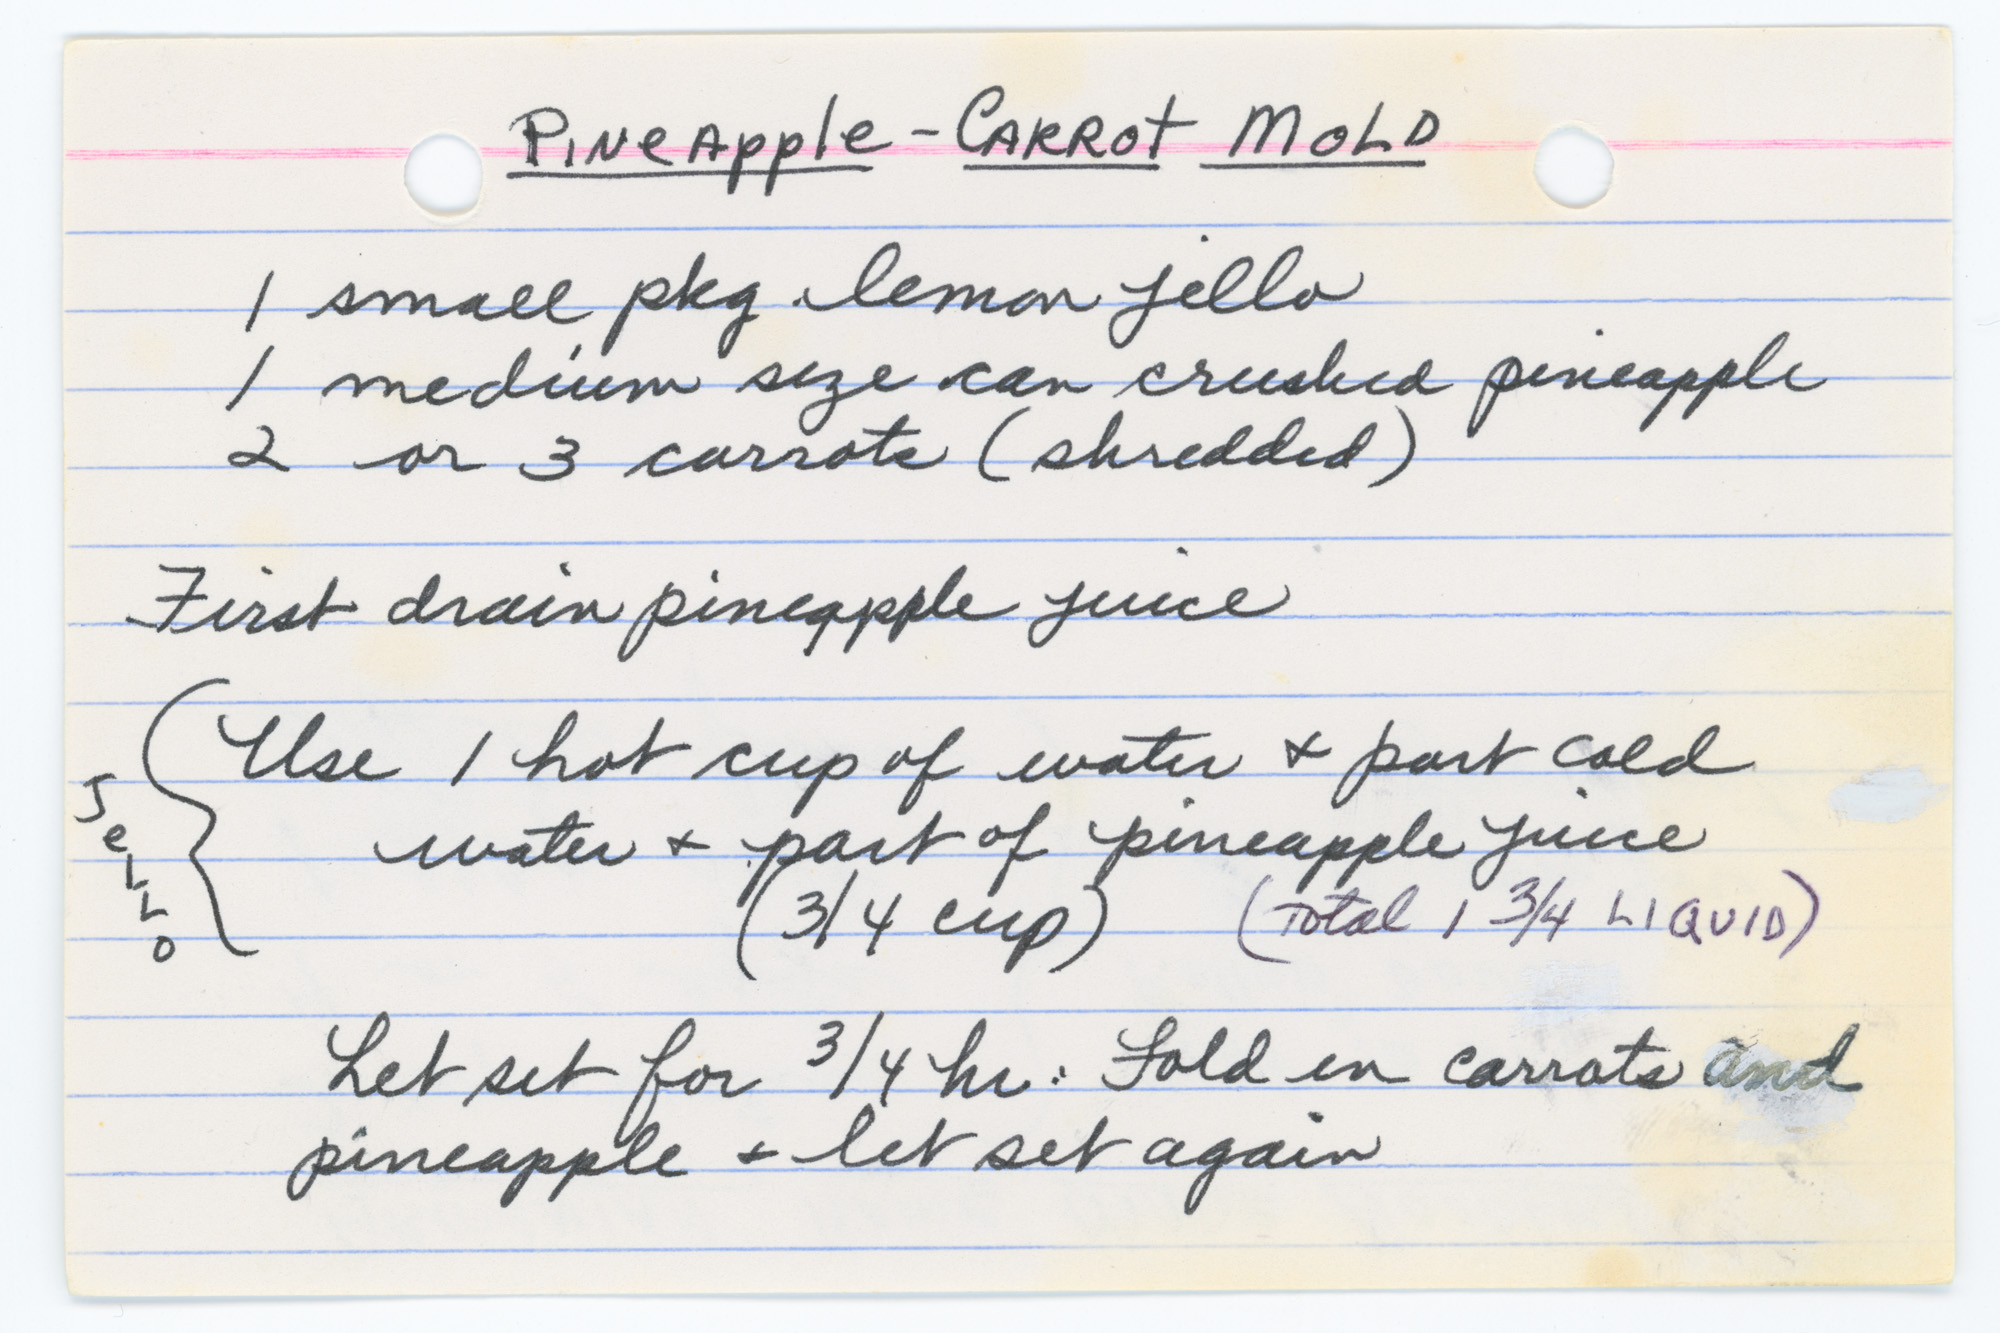 PINeApple - CARROt MOLD
1 small pkg lemon jello
1 medium size can crushed pineapple
2 or 3 carrots (shredded)
First drain pineapple juice
JeLLO
Use 1 hot cup of water & part cold
water & part of pineapple juice
(3/4 cup) (Total 1 3/4 LIQUID)
Let set for 3/4 hr: Fold in carrots and
pineapple & let set again